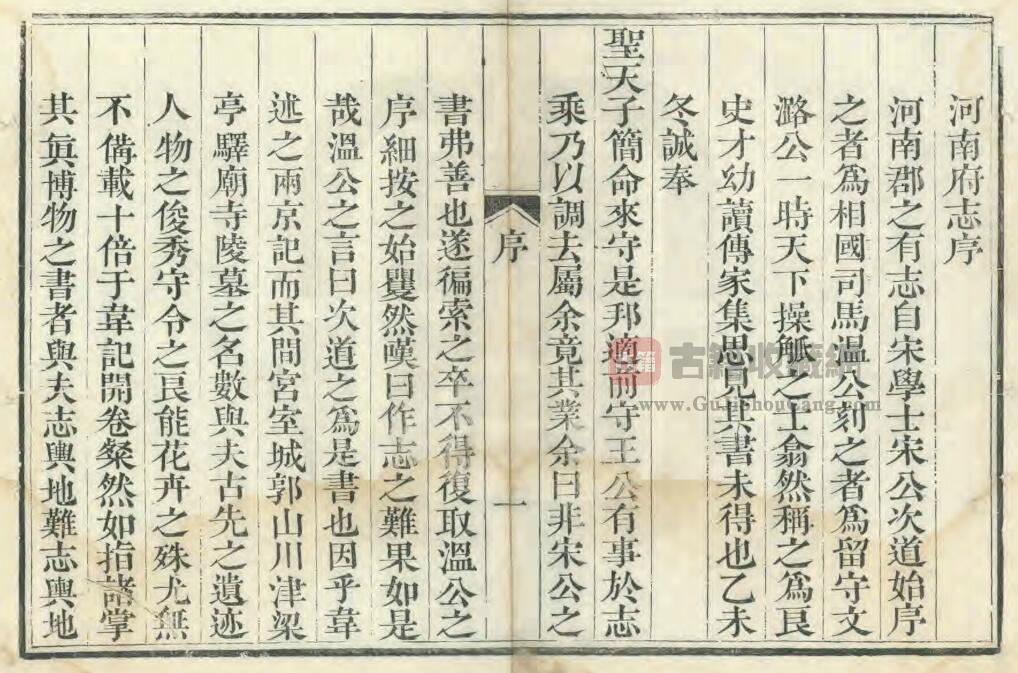 河南府志序
河南郡之有志自宋學士宋公次道始序
之者為相國司馬溫公刻之者為留守文
潞公一時天下操觚之士翕然稱之為良
史才幼讀傳家集思見其書未得也乙未
冬誠奉
聖天子簡命來守是邦適前守王公有事於志
乘乃以調去屬余竟其業余曰非宋公之
序
一
書弗善也遂徧索之卒不得復取溫公之
序細按之始矍然嘆曰作志之難果如是
哉溫公之言曰次道之為是書也因乎韋
述之兩京記而其間宮室城郭山川津梁
亭驛廟寺陵墓之名數與夫古先之遺迹
人物之俊秀守令之良能花卉之殊尤無
不備載十倍于韋記開卷粲然如指諸掌
其眞博物之書者與夫志輿地難志輿地
古籍
古籍收藏網
www.GuJiShouCang.com